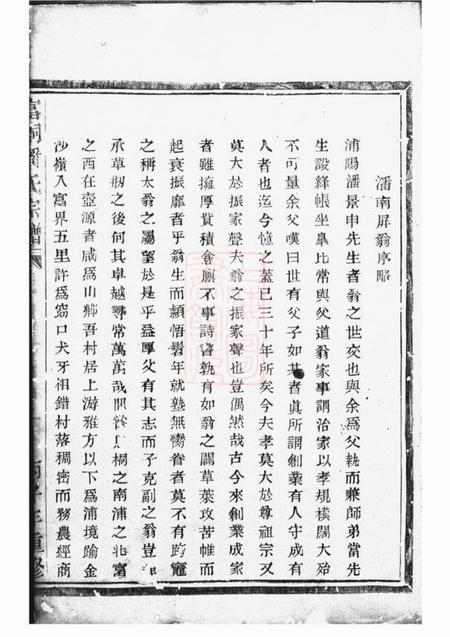 潘南屏翁序略
浦陽潘景申先生者翁之世交也與余爲父執而兼師弟當先
生設絳帳坐皐比常與父道翁家事謂治家以孝規模闊大殆
不可量余父嘆曰世有父子如其者眞所謂創業有人守成有
人者也迄今憶之蓋已三十年所矣今夫孝莫大於尊祖宗又
莫大於振家聲夫翁之振家聲也豈偶然哉古今來創業成家
者雖擁厚貲積倉廩不事詩書孰有如翁之闢草萊攻苦帷而
起衰振靡者乎翁生而穎悟髫年就塾無嚮眷者莫不有跨竈
之稱太翁之屬望於是乎益厚父有其志而子克副之翁豈
承草刱之後何其卓越尋常萬萬哉 桐之南浦之北富
之西在壺源者咸爲山鄉吾村居上游雅方以下爲浦境踰金
沙嶺入富界五里許爲窈口犬牙相錯村落稠密而務農經商
富桐潘氏宗譜
丙子年重修